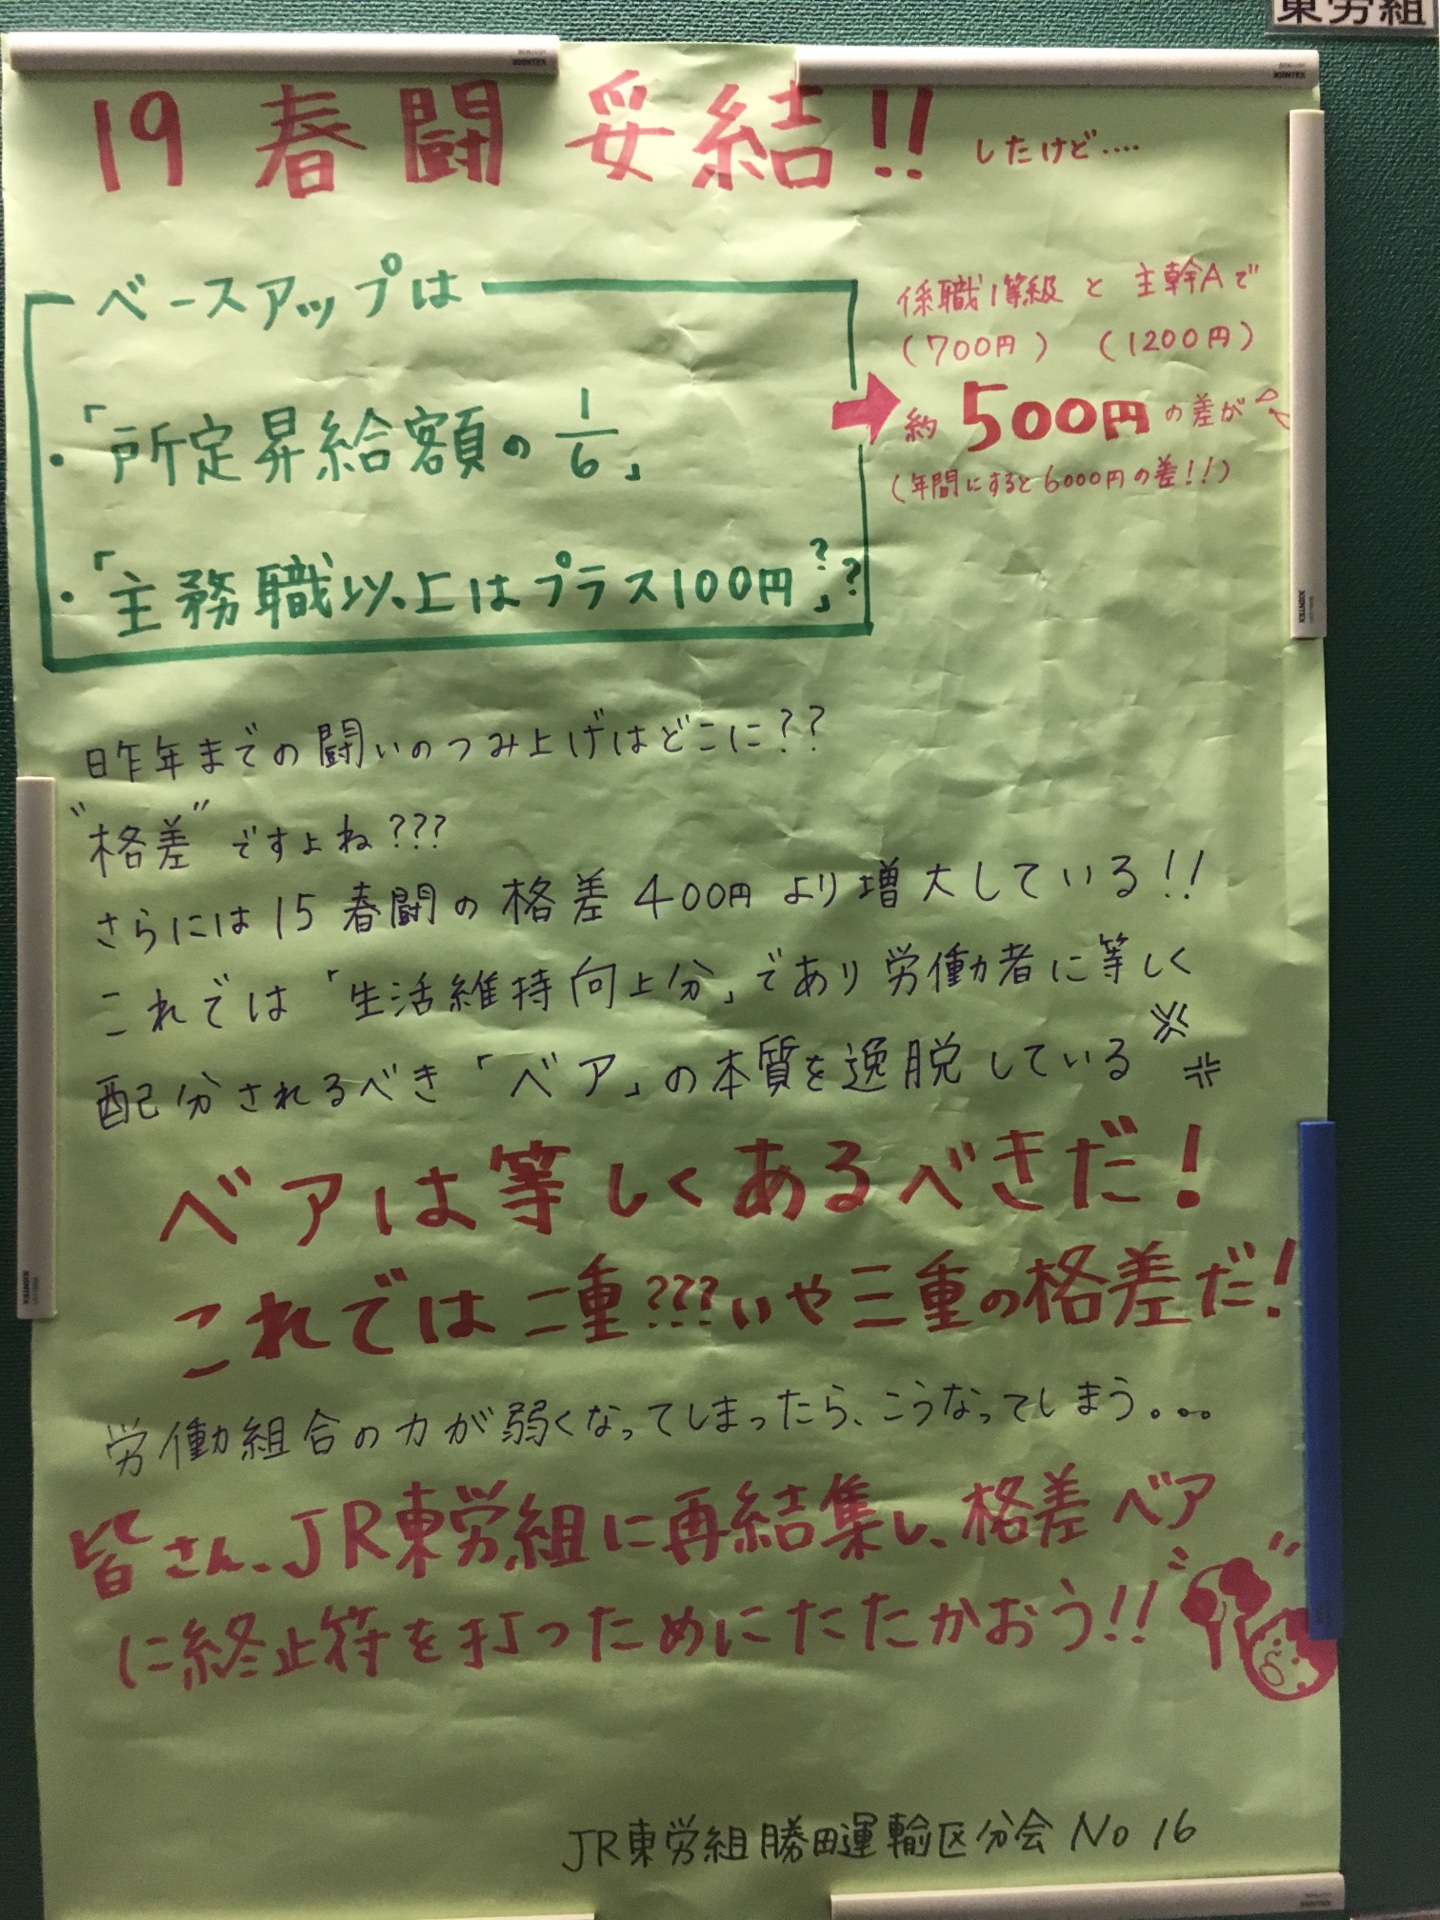 東労組
19 春闘 妥結!! したけど‥‥
ベースアップは
・「所定昇給額の 1/6」
・「主務職以上はプラス100円」??
係職1等級 と 主幹Aで
(700円) (1200円)
約 500円 の差が
(年間にすると6000円の差!!)
昨年までの闘いのつみ上げはどこに??
"格差" ですよね???
さらには15春闘の格差400円より増大している!!
これでは「生活維持向上分」であり労働者に等しく
配分されるべき「ベア」の本質を逸脱している
ベアは等しくあるべきだ!
これでは二重???いや三重の格差だ!
労働組合の力が弱くなってしまったら、こうなってしまう。。。
皆さん、JR東労組に再結集し、格差ベア
に終止符を打つためにたたかおう!!
JR東労組勝田運輸区分会 No 16